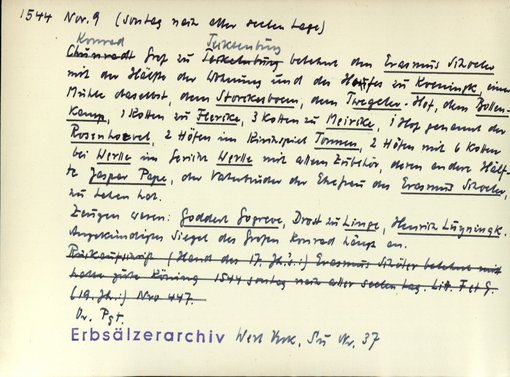 1544 Nov. 9 (sontag nach aller seelen tage)
Konrad Tecklenburg
Chunradt Graf zu Teckelnburg belehnt den Erasmus Schoeler
mit der Hälfte der Wohnung und des Hofes zu Koenink, einer
Mühle daselbst, dem Storckenboem, dem Tregeler-Hof, dem Bollen-
kamp, 1 Kotten zu Flerike, 3 Kotten zu Meirike, 1 Hof genannt der
Rosenhoevel, 2 Höfen im Kirchspiel Tonnen, 2 Höfen mit 6 Koten
bei Werlle im Gericht Werlle mit allem Zubehör, deren andere Hälf-
te Jasper Pape, der Vaterbruder der Ehefrau des Erasmus Schoeler,
zu Lehen hat.
Zeugen waren: Goddert Gogreve, Drost zu Linge, Henrich Lüyningk.
Angekündigtes Siegel des Grafen Konrad hängt an.
Rückaufschrift (Hand des 17. Jh.s.) Erasmus Schöler belehnt mit
halbe güte Köning 1544 sontag nach aller seelen tag. Lit. F et G.
(19. Jh.) Nro 447.
Or. Pgt.
Erbsälzerarchiv Werl Urk. Nr. 37